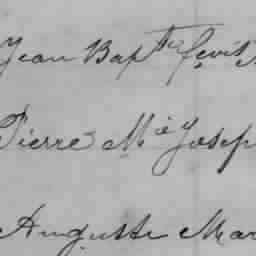 Jean Bapte
Pierre Mie Joseph
Auguste Mar